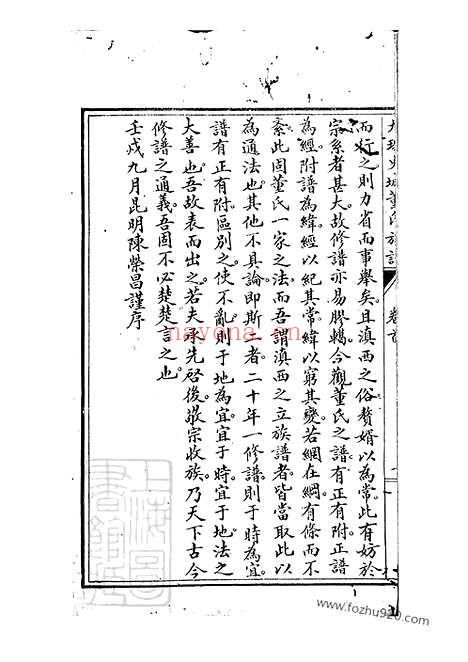 大理史城董氏族譜
卷首
而行之則力省而事舉矣且滇西之俗贅婿以為常此有妨於
宗系者甚大故修譜亦易膠轕今觀董氏之譜有正有附正譜
為經附譜為緯經以紀其常緯以窮其變若網在綱有條而不
紊此固董氏一家之法而吾謂滇西之立族譜者皆當取此以
為通法也其他不具論即斯二者二十年一修譜則于時為宜
譜有正有附區別之使不亂則于地為宜宜于時宜于地法之
大善也吾故表而出之若夫承先啓後敬宗收族乃天下古今
修譜之通義吾固不必楚楚言之也
壬戌九月昆明陳榮昌謹序
上海圖書館藏
nayona.cn
www.fozhu920.com